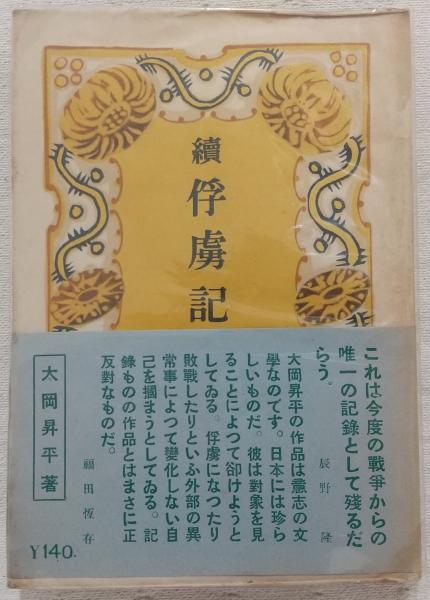 續 俘虜記
これは今度の戰爭からの
唯一の記錄として殘るだ
らう。
辰野 隆
大岡昇平の作品は意志の文
學なのです。日本には珍ら
しいものだ。彼は對象を見
ることによつて卻けようと
してゐる。俘虜になつたり
敗戰したりといふ外部の異
常事によつて變化しない自
己を摑まうとしてゐる。記
錄ものの作品とはまさに正
反對なものだ。
福田恆存
大岡昇平著
¥140.